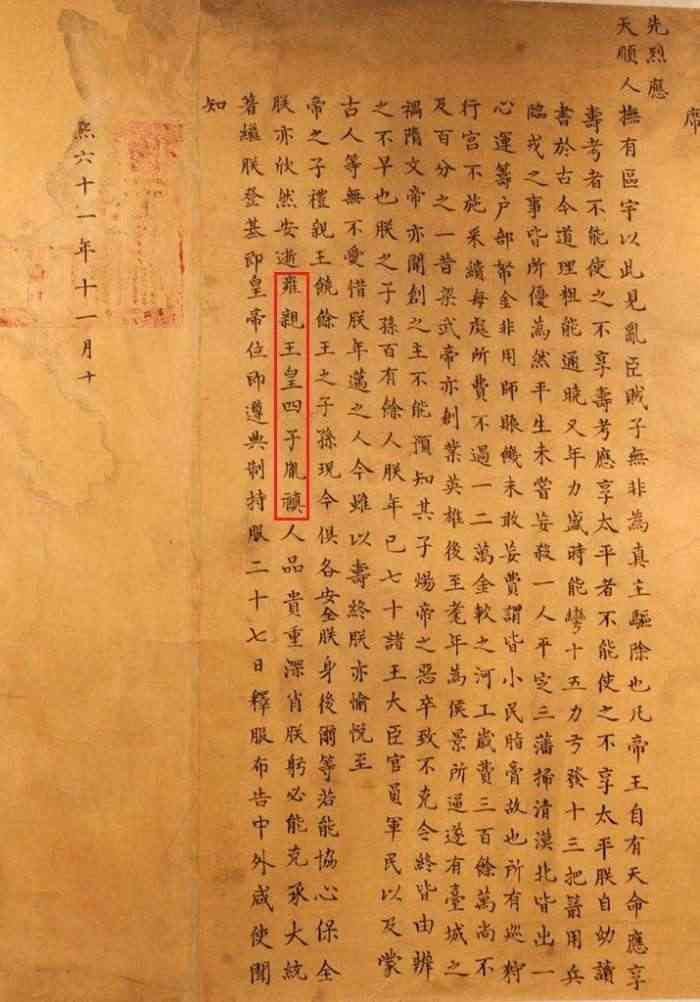 席
先烈應
天順人撫有區宇以此見亂臣賊子無非為真主驅除也凡帝王自有天命應享
壽考者不能使之不享壽考應享太平者不能使之不享太平朕自幼讀
書於古今道理粗能通曉又年力盛時能彎十五力弓發十三把箭用兵
臨戎之事皆所優為然平生未嘗妄殺一人平定三藩掃清漠北皆出一
心運籌户部帑金非用師賑饑未敢妄費謂皆小民脂膏故也所有巡狩
行宮不施采繢每處所費不過一二萬金較之河工歲費三百餘萬尚不
及百分之一昔梁武帝亦創業英雄後至耄年為侯景所逼遂有臺城之
禍隋文帝亦開創之主不能預知其子煬帝之惡卒致不克令終皆由辨
之不早也朕之子孫百有餘人朕年已七十諸王大臣官員軍民以及蒙
古人等無不愛惜朕年邁之人今雖以壽終朕亦愉悅至
帝之子禮親王饒餘王之子孫現今俱各安全朕身後爾等若能協心保全
朕亦欣然安逝雍親王皇四子胤禛人品貴重深肖朕躬必能克承大統
著繼朕登基即皇帝位即遵典制持服二十七日釋服布告中外咸使聞
知
熙六十一年十一月十